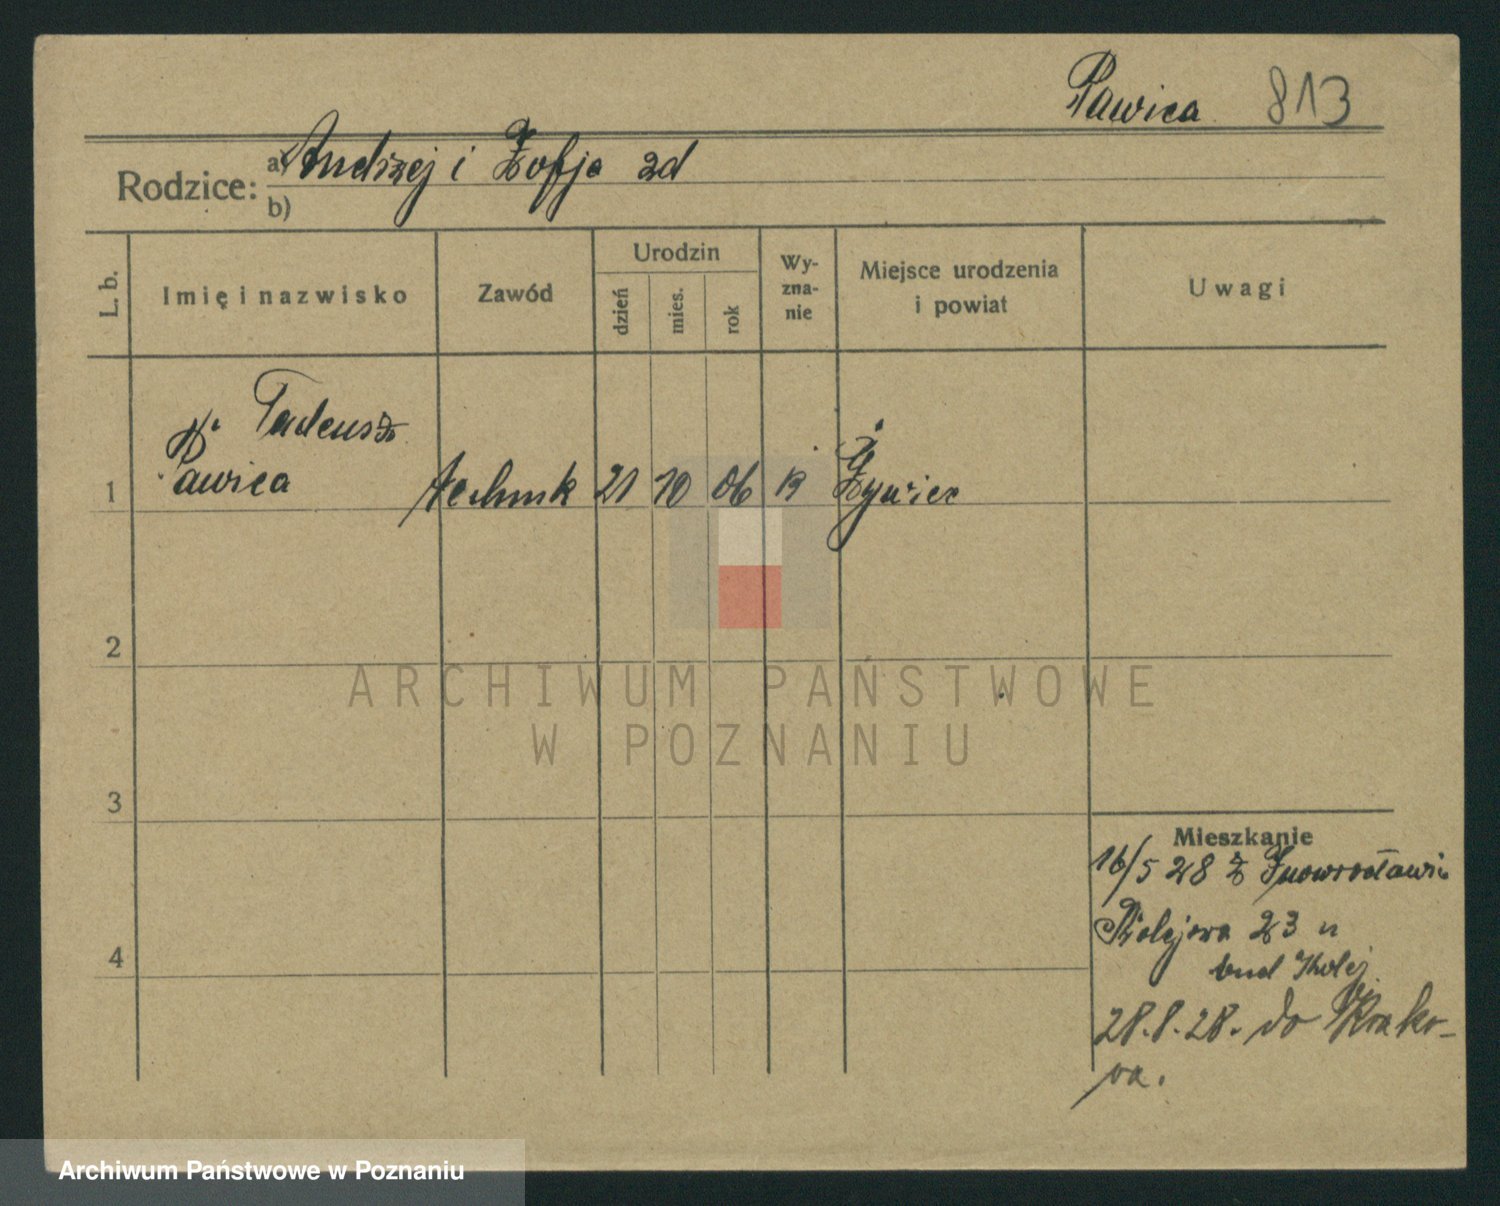 Pawica 813
Rodzice: a) Andrzej i Zofja
b)
L. b.
Imię i nazwisko
Zawód
Urodzin
dzień
mies.
rok
Wy-
zna-
nie
Miejsce urodzenia
i powiat
Uwagi
Tadeusz
1 Pawica technik 21 10 06 Żywiec
2
ARCHIWUM PAŃSTWOWE
W POZNANIU
3
Mieszkanie
16/5 28 z Inowrocławia
Kolejowa 23 u
Kolej.
4
28.8.28. do Krako-
wa.
Archiwum Państwowe w Poznaniu